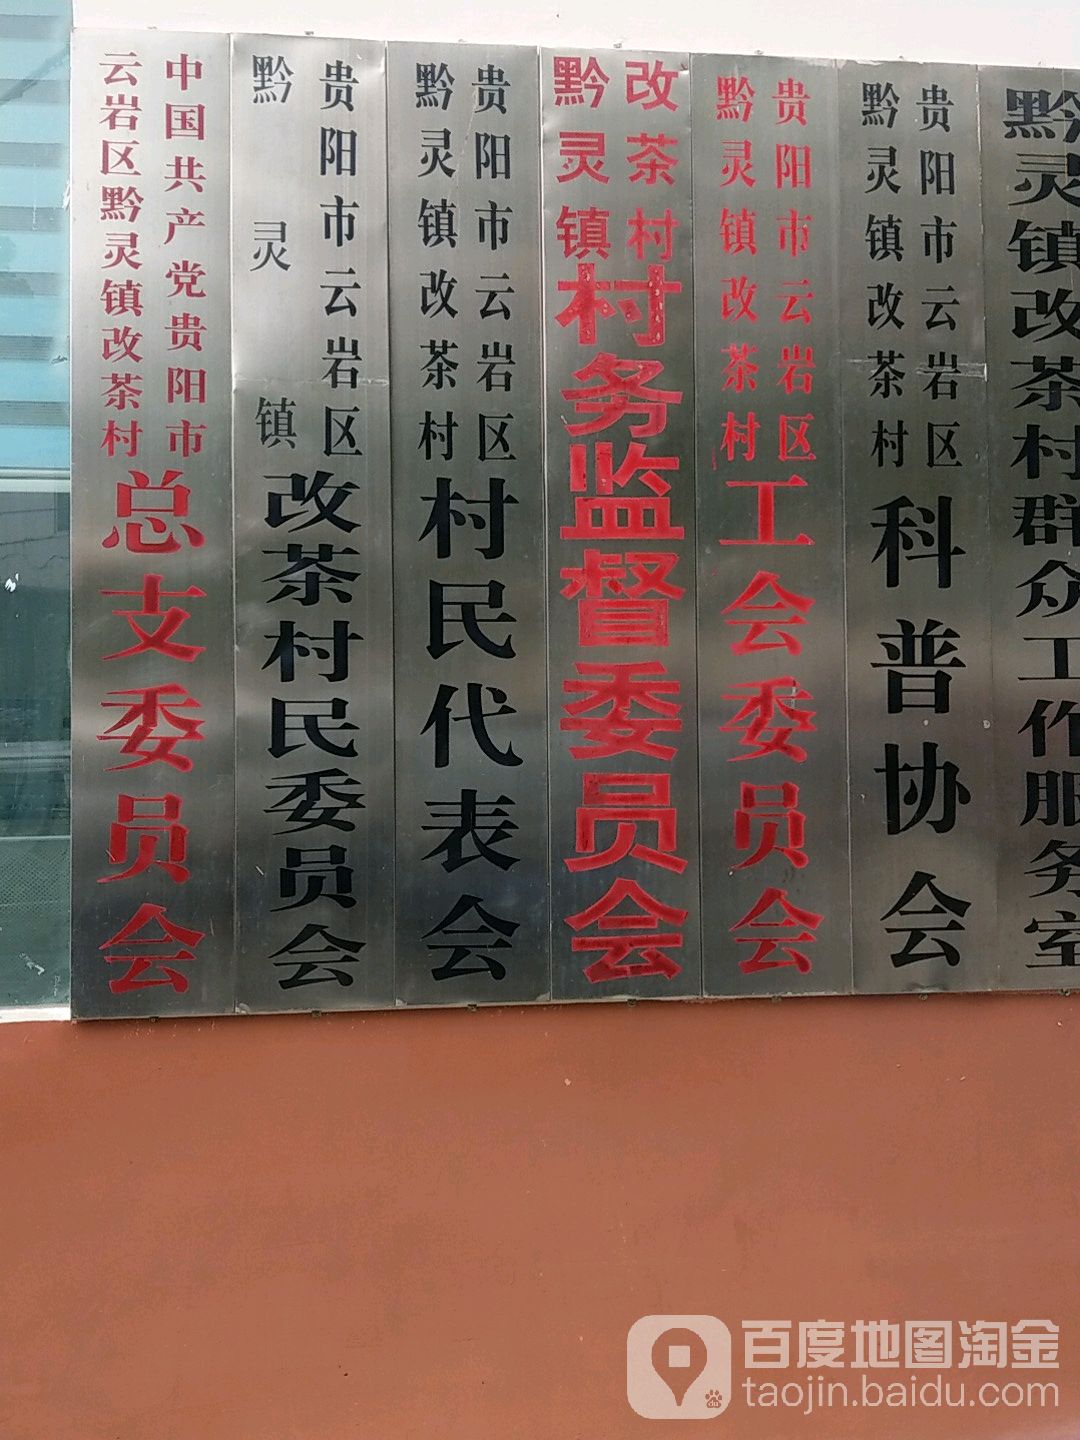 中国共产党贵阳市
云岩区黔灵镇改茶村
总支委员会
贵阳市云岩区
黔灵镇
改茶村民委员会
贵阳市云岩区
黔灵镇改茶村
村民代表会
黔灵镇
改茶村
村务监督委员会
贵阳市云岩区
黔灵镇改茶村
工会委员会
贵阳市云岩区
黔灵镇改茶村
科普协会
黔灵镇改茶村群众工作服务室
百度地图淘金
taojin.baidu.com